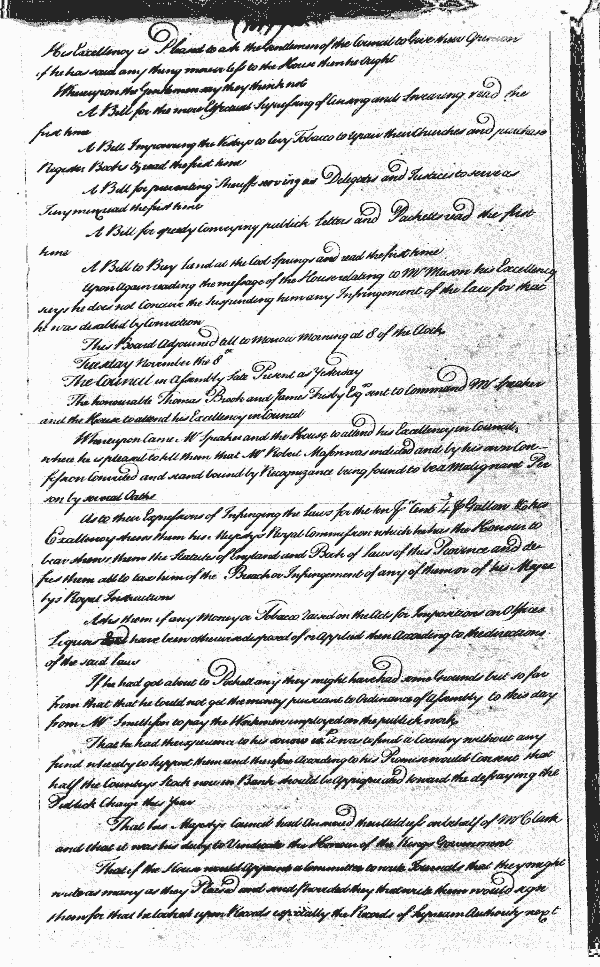 His Excellency is Pleased to ask the Gentlemen of the Council to Give their Opinion
if he has said any thing more or less to the House then he ought
Whereupon the Gentlemen say they think not
A Bill for the more Effectuall Supressing of Cursing and Swearing read the
first time
A Bill Impowering the Vestrys to Levy Tobacco to repair their Churches and purchase
Register Books &c read the first time
A Bill for preventing Sheriffs serving as Delegates and Justices to serve as
Jury men read the first time
A Bill for speedy Conveying publick Letters and Packetts read the first
time
A Bill to Buy Land at the Cool Springs and read the first time
Upon again reading the message of the House relating to Mr Mason his Excellency
says he does not Conceive the Suspending him any Infringement of the law for that
he was disabled by Conviction
This Board Adjourned till to Morrow Morning at 8 of the Clock
Tuesday November the 8th
The Council in Assembly Sate Present as Yesterday
The honourable Thomas Brook and James Frisby Esqrs sent to Command Mr Speaker
and the House to attend his Excellency in Council
Whereupon Came Mr Speaker and the House to attend his Excellency in Council,
where he is pleased to tell them that Mr Robert Mason was indicted and by his own Con-
fession Convicted and stand bound by Recognizance being found to be a Malignant Per
son by several Oaths
As to their Expressions of Infringing the Laws for the ten Ct and 4d Gallon to his
Excellency shews them his Majestys Royal Commission which he has the Honour to
bear shews them the Statutes of England and Book of Laws of this Province and de
fies them all to tax him of the Breach or Infringement of any of them or of his Majes
tys Royal Instructions
Asks them if any Money or Tobacco raised on the Acts for Impositions on
Liquors have been otherwise disposed of or Applied then According to the directions
of the said laws
If he had got about to Pockett any they might have had some Grounds but so far
from that that he could not get the money pursuant to Ordinance of Assembly to this day
from Mr Smithson to pay the Workmen employed on the publick work
That he had the experience to his sorrow it was to find a Country without any
fund whereby to Support them and therefore According to his Promise would Consent that
half the Countrys Stock now in Bank should be Appropriated toward the defraying the
Publick Charge this Year
That his Majestys Council had Answered their Address on behalf of Mr Clark
and that it was his duty to Vindicate the Honour of the Kings Government
That if the House would Appoint a Committee to write Journals that they might
write as many as they Pleased and send provided they that write them would sign
them for that he looked upon Records especially the Records of Supream Authority next